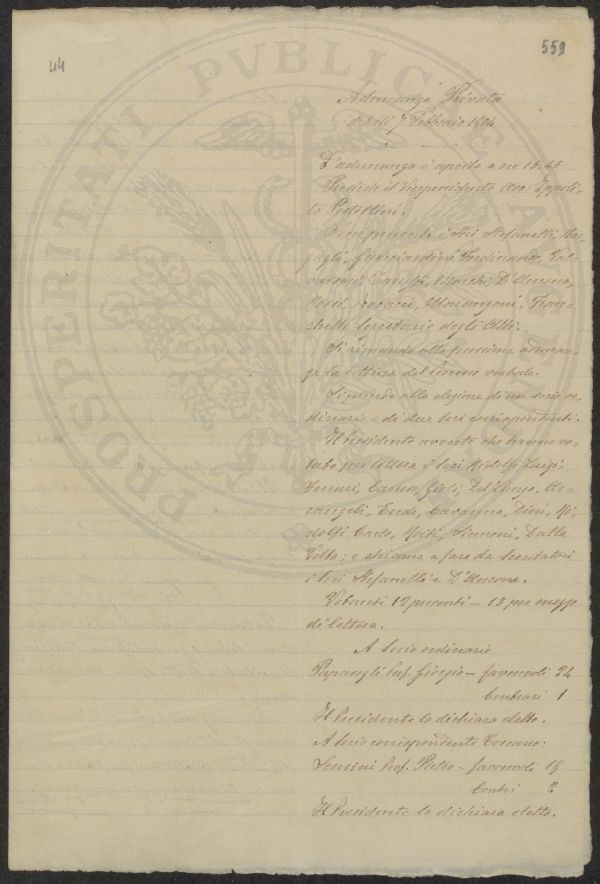 44
559
PROSPERITATI PVBLICAE
Adunanza Privata
del dì 7 Febbraio 1904
L'adunanza è aperta a ore 15.45
Presiede il Vicepresidente Avv. Ippoli-
to Pestellini.
Sono presenti i Soci Stefanelli,
Guicciardini Ferdinando,
Marchi, D'Ancona,
Marangoni, Fran-
chetti Segretario degli Atti.
Si rimanda alla prossima adunan-
za la lettura del Processo verbale.
Si procede alla elezione di un socio or-
dinario e di due soci corrispondenti.
Il Presidente avverte che hanno vo-
tato per lettera i soci Ridolfi Luigi,
Ferrari, Caruso, Giuli, Del Lungo, Ar-
cangeli, Cavagna, Ri-
dolfi Carlo, Simoni, Dalla
Volta; e chiama a fare da Scrutatori
i Soci Stefanelli e D'Ancona.
Votanti 12 presenti – 13 per mezzo
di lettera.
A Socio ordinario
Prof. Giorgio – favorevoli 24
Contrari 1
Il Presidente lo dichiara eletto.
A Socio corrispondente Toscano:
Prof. Pietro – favorevoli 19
Contrari
Il Presidente lo dichiara eletto.